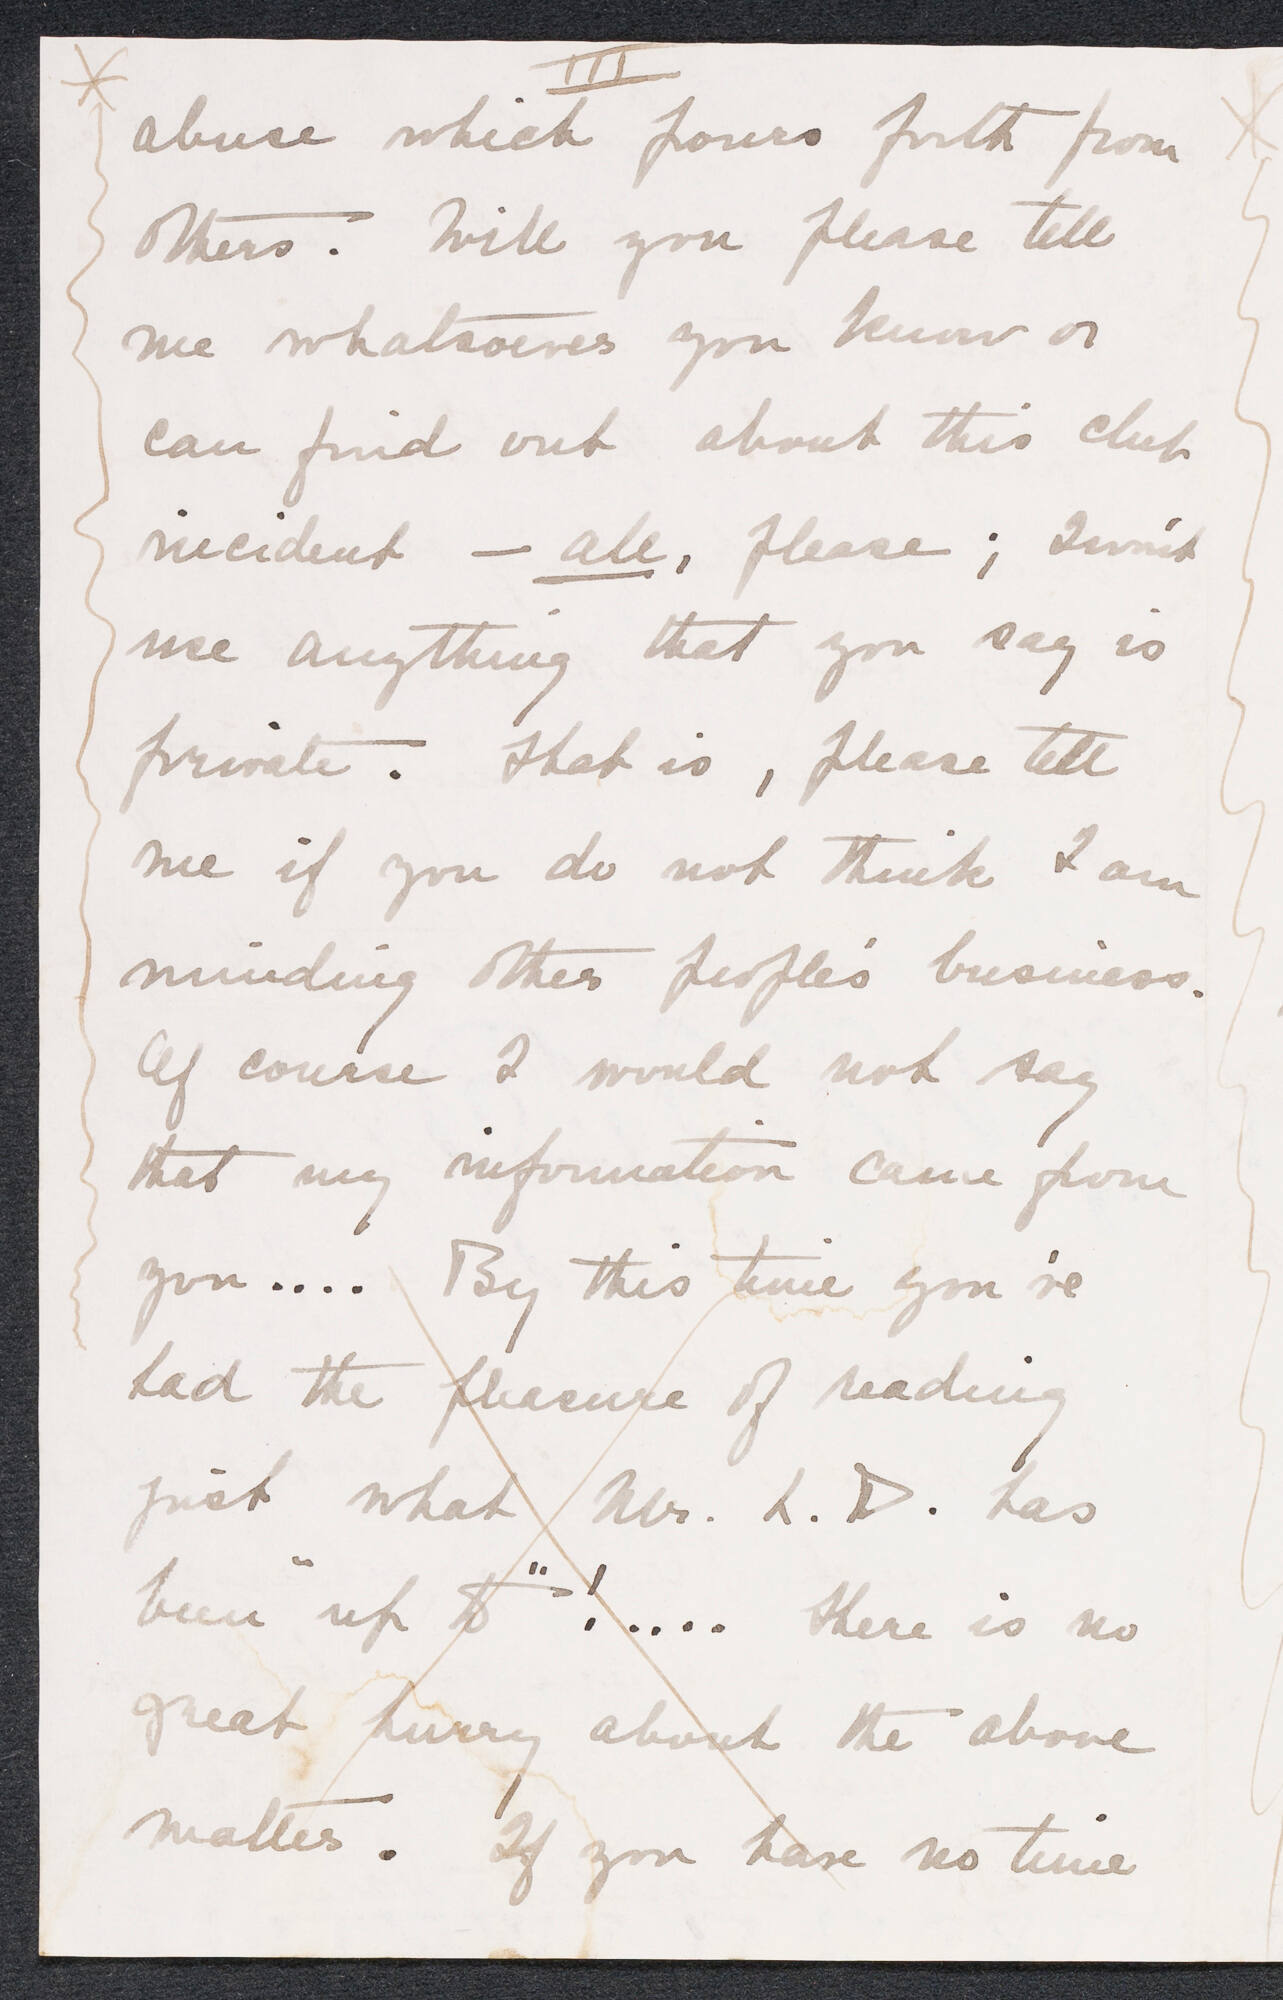 III
abuse which pours forth from
others. Will you please tell
me whatsoever you know or
can find out about this club
incident — all, please; I won't
use anything that you say is
private. That is, please tell
me if you do not think I am
minding other people's business.
Of course I would not say
that my information came from
you.... By this time you've
had the pleasure of reading
just what Mr. L. D. has
been "up to"!.... There is no
great hurry about the above
matter. If you have no time